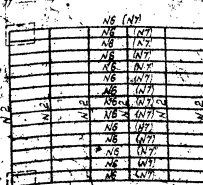 N6 (N7)
N6 (N7)
N6 (N7)
N6 (N7)
N6 (N7)
N6 (N7)
N6 (N7)
N2 N2 N6 N2 (N7) N2
N6 (N7)
N6 (N7)
N6 (N7)
N6 (N7)
N6 (N7)
N6 (N7)